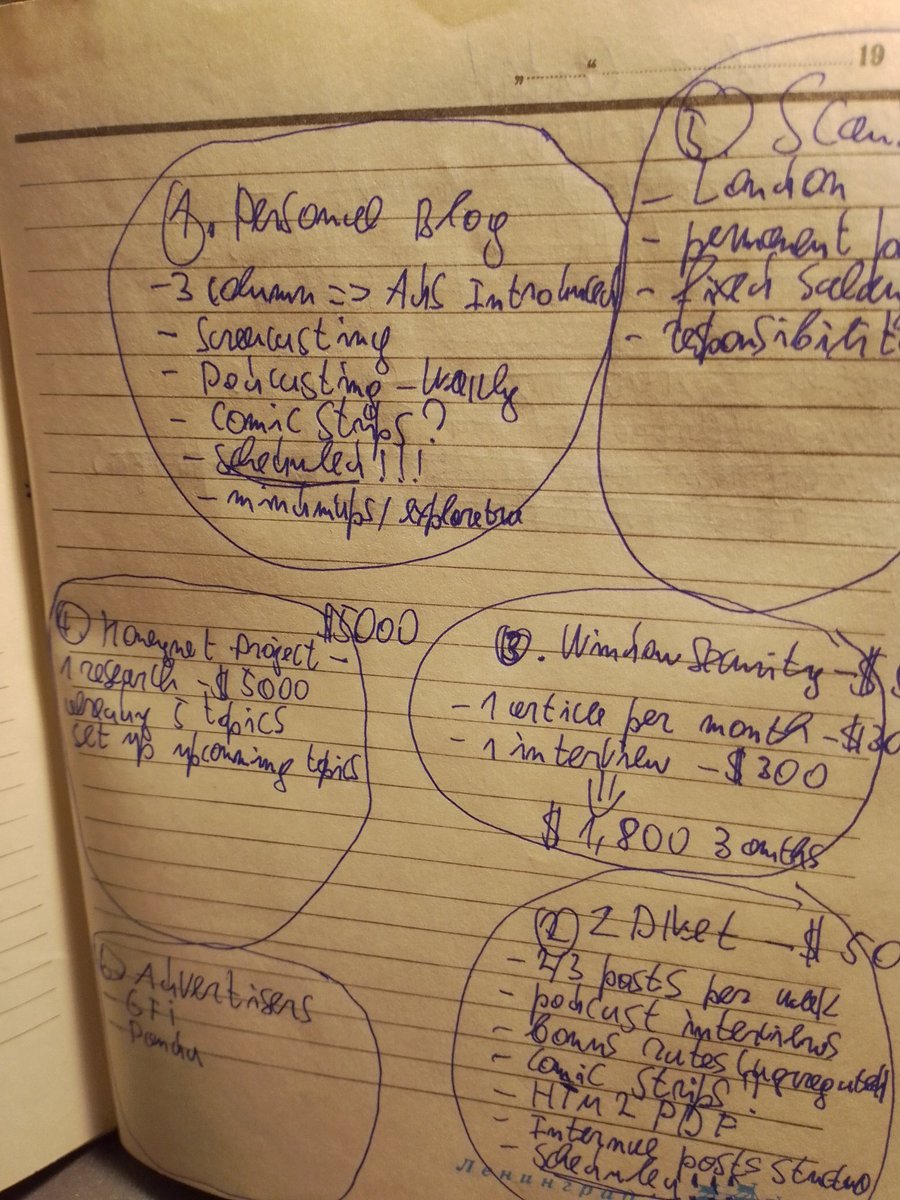 19
1. Personal Blog
- 3 column => Ads Introduced
- Screencasting
- Podcasting - weekly
- Comic Strips?
- Scheduled!!!
- mindmaps/
3 Scan
- London
- permanent
- fixed
- responsibilit
4. Honeynet Project - $5000
1 research - $5000
already 5 topics
set up upcomming topics
3. WindowSecurity - $
- 1 article per month - $30
- 1 interview - $300
$1,800 3 onths
2 ZDNet - $50
- 2/3 posts per week
- podcast interviews
- bonus rates
- comic strips
- HTM 2 PDF
- Internal posts
- Scheduled!!!
6. Advertisers
- GFi
- Panda
Ленинград